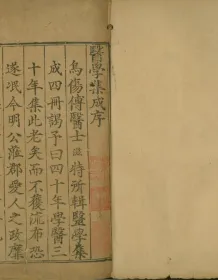 醫學集成序
烏傷傅醫士滋特所輯醫學集
成四冊謁予曰四十年學醫三
十年集此老矣而不獲流布恐
遂泯今明公蒞郡愛人之政靡